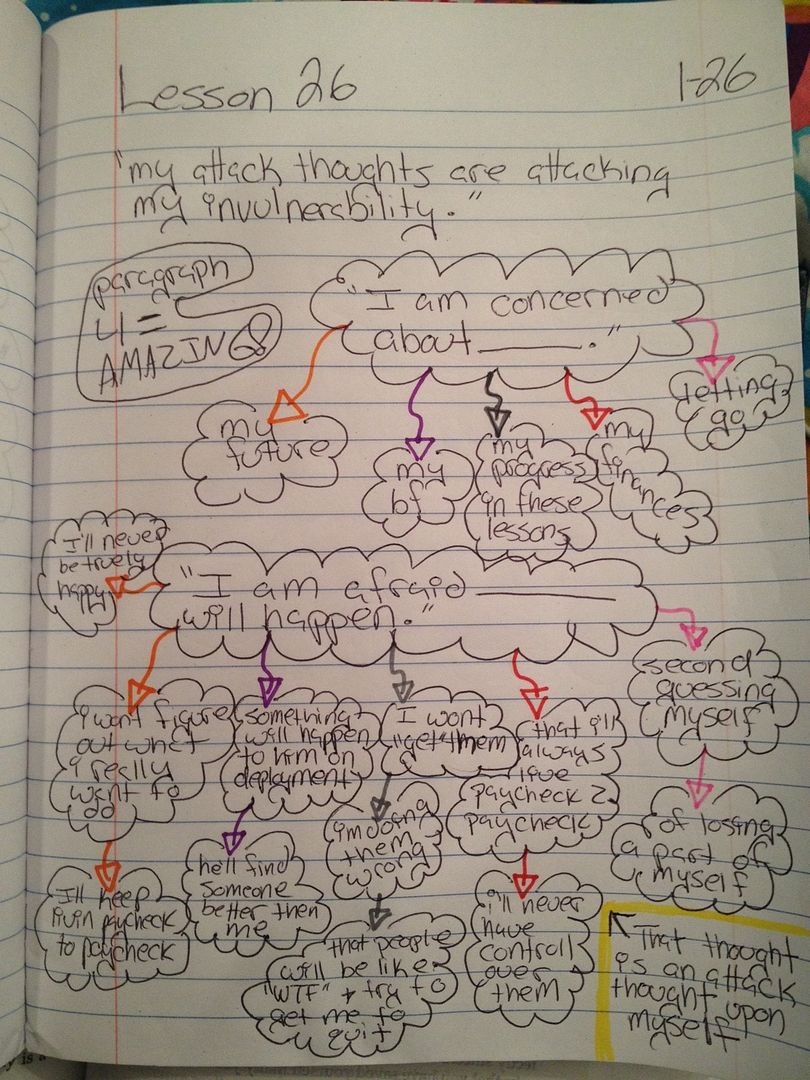 Lesson 26
1-26
"my attack thoughts are attacking
my invulnerability."
paragraph
4 =
AMAZING
"I am concerned
about ______."
my
future
my
bf
my
progress
in these
lessons
my
finances
letting
go
I'll never
be truely
happy
"I am afraid ______
will happen."
i wont figure
out what
i really
want to
do
I'll keep
livin paycheck
to paycheck
something
will happen
to him on
deployment
he'll find
someone
better then
me
I wont
"get" them
i'm doing
them
wrong
that people
will be like
"WTF" + try to
get me to
quit
that i'll
always
live
paycheck 2
paycheck
i'll never
have
controll
over
them
second
guessing
myself
of losing
a part of
myself
That thought
is an attack
thought upon
myself